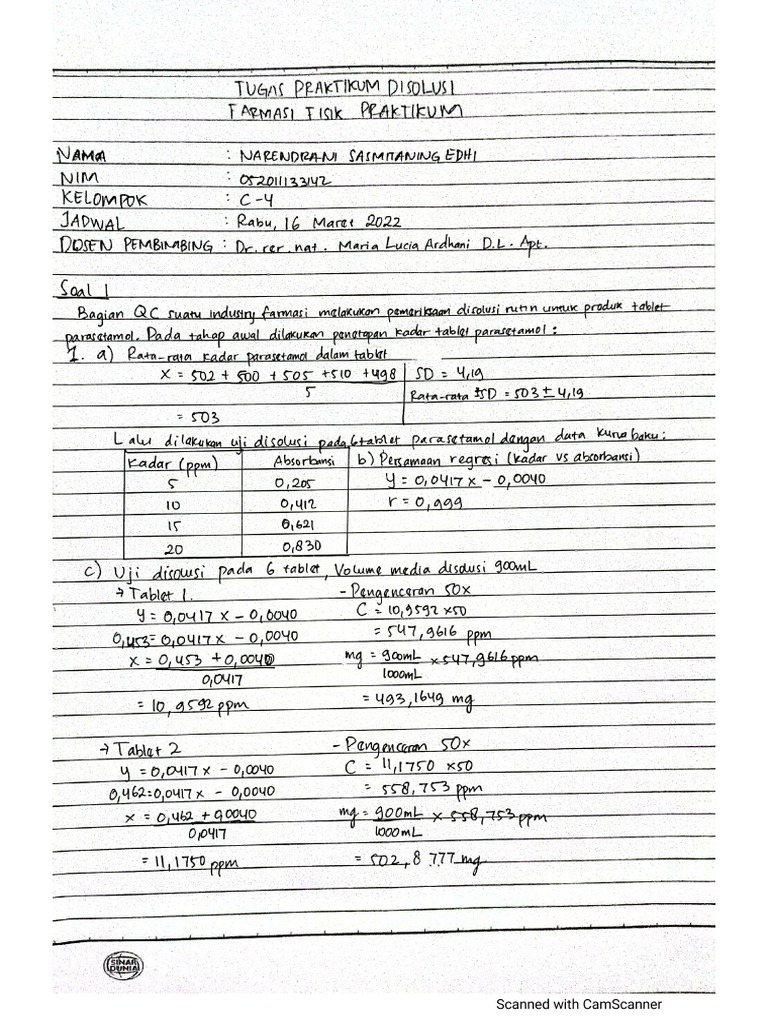 TUGAS PRAKTIKUM DISOLUSI
FARMASI FISIK PRAKTIKUM
NAMA : NARENDRANI SASMITANING EDHI
NIM : 052011133142
KELOMPOK : C-4
JADWAL : Rabu, 16 Maret 2022
DOSEN PEMBIMBING : Dr. rer. nat. Maria Lucia Ardhani D.L. Apt.
Soal 1
Bagian QC suatu industry farmasi melakukan pemeriksaan disolusi rutin untuk produk tablet
parasetamol. Pada tahap awal dilakukan penetapan kadar tablet parasetamol :
1. a) Rata-rata kadar parasetamol dalam tablet
x = 502 + 500 + 505 + 510 + 498 SD = 4,19
5 Rata-rata ± SD = 503 ± 4,19
= 503
Lalu dilakukan uji disolusi pada 6 tablet parasetamol dengan data kurva baku:
Kadar (ppm) Absorbansi b) Persamaan regresi (kadar vs absorbansi)
5 0,205 y = 0,0417 x - 0,0040
10 0,412 r = 0,999
15 0,621
20 0,830
c) Uji disolusi pada 6 tablet, Volume media disolusi 900mL
→ Tablet 1. - Pengenceran 50x
y = 0,0417 x - 0,0040 C = 10,9592 x50
0,453 = 0,0417 x - 0,0040 = 547,9616 ppm
x = 0,453 + 0,0040 mg = 900mL x 547,9616 ppm
0,0417 1000mL
= 10,9592 ppm = 493,1649 mg
→ Tablet 2 - Pengenceran 50x
y = 0,0417 x - 0,0040 C = 11,1750 x50
0,462 = 0,0417 x - 0,0040 = 558,753 ppm
x = 0,462 + 0,0040 mg = 900mL x 558,753 ppm
0,0417 1000mL
= 11,1750 ppm = 502,8777 mg
SINAR
DUNIA
Scanned with CamScanner